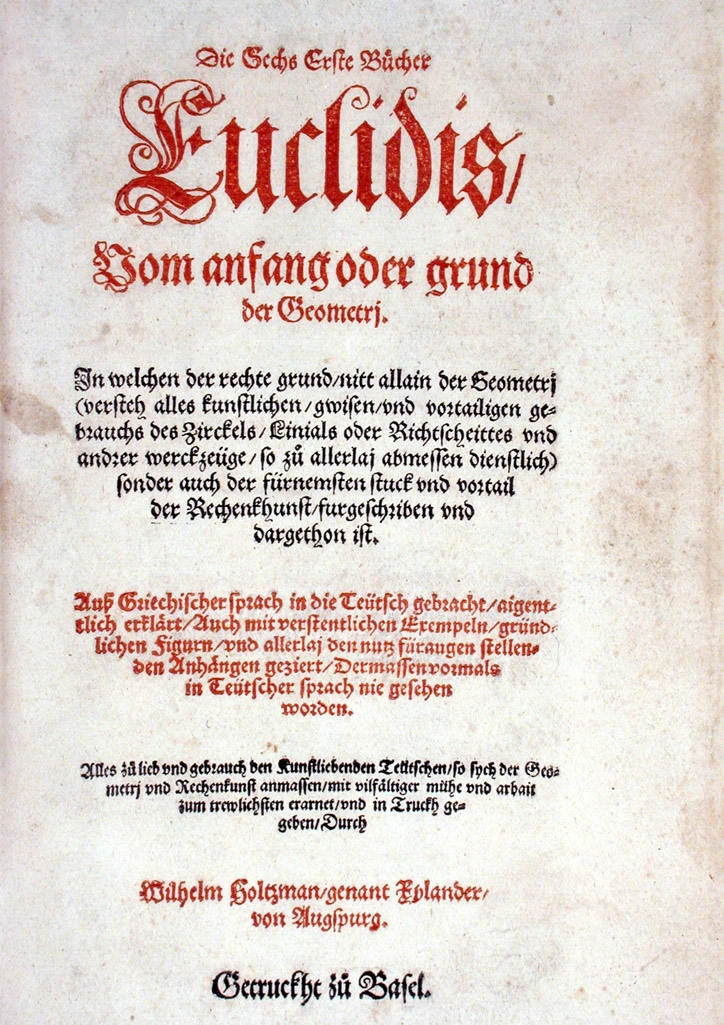 Die Sechs Erste Bücher
Euclidis/
Vom anfang oder grund
der Geometrj.
In welchen der rechte grund/nitt allain der Geometrj
(versteh alles kunstlichen/gwisen/vnd vortailigen ge-
brauchs des Zirckels/Linials oder Richtscheittes vnd
andrer werckzeüge/so zů allerlaj abmessen dienstlich)
sonder auch der fürnemsten stuck vnd vortail
der Rechenkhunst/furgeschriben vnd
dargethon ist.
Auß Griechischer sprach in die Teütsch gebracht/aigent-
tlich erklärt/Auch mit verstentlichen Exempeln/gründ-
lichen Figurn/vnd allerlaj den nutz füraugen stellen-
den Anhängen geziert/Dermassen vormals
in Teütscher sprach nie gesehen
worden.
Alles zů lieb vnd gebrauch den Kunstliebenden Teütschen/so sych der Geo-
metrj vnd Rechenkunst anmassen/mit vilfältiger mühe vnd arbait
zum trewlichsten erarnet/vnd in Truckh ge-
geben/Durch
Wilhelm Holtzman/genant Xylander/
von Augspurg.
Getruckht zů Basel.